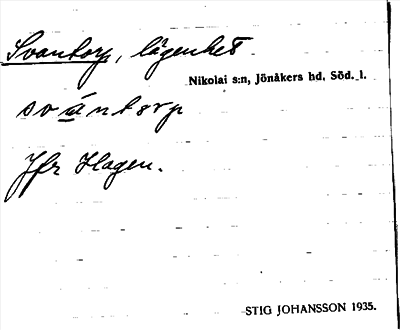 Svantorp, lägenhet
Nikolai s:n, Jönåkers hd, Söd. l.
svántorp
Jfr Hagen.
STIG JOHANSSON 1935.